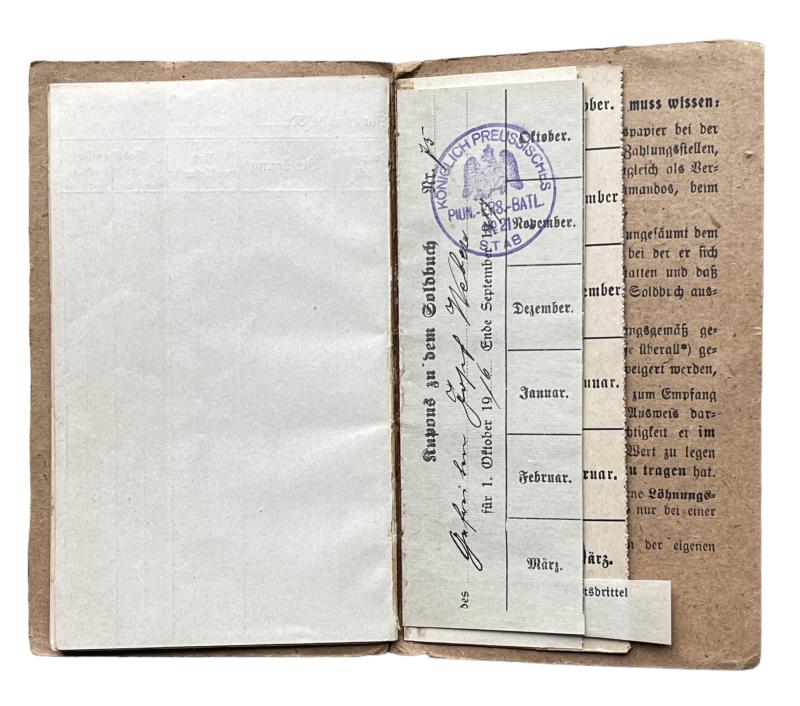 Kupons zu dem Soldbuch Nr. 75
des Gefreiten Josef Weber
für 1. Oktober 1916 Ende September 19
KÖNIGLICH PREUSSISCHES
PIUN.-ERS.-BATL.
21
STAB
Oktober.
November.
Dezember.
Januar.
Februar.
März.
ober.
ember
ember
nuar.
ruar.
ärz.
muss wissen:
spapier bei der
Zahlungsstellen,
gleich als Ver-
mandos, beim
ungesäumt dem
bei der er sich
tatten und daß
Soldbuch aus-
ngsgemäß ge-
e überall*) ge-
weigert werden,
zum Empfang
Ausweis dar-
htigkeit er im
Wert zu legen
u tragen hat.
ne Löhnungs-
nur bei einer
n der eigenen
tsdrittel